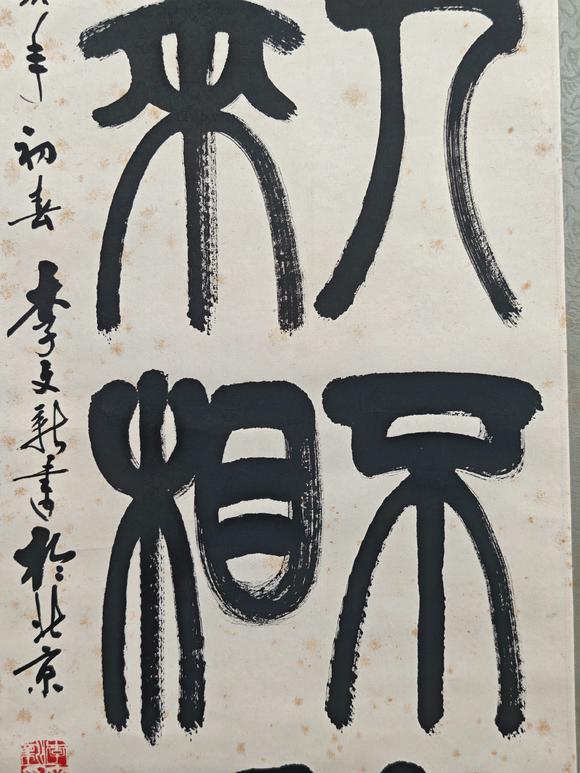 不
來相
年初春李文新書於北京